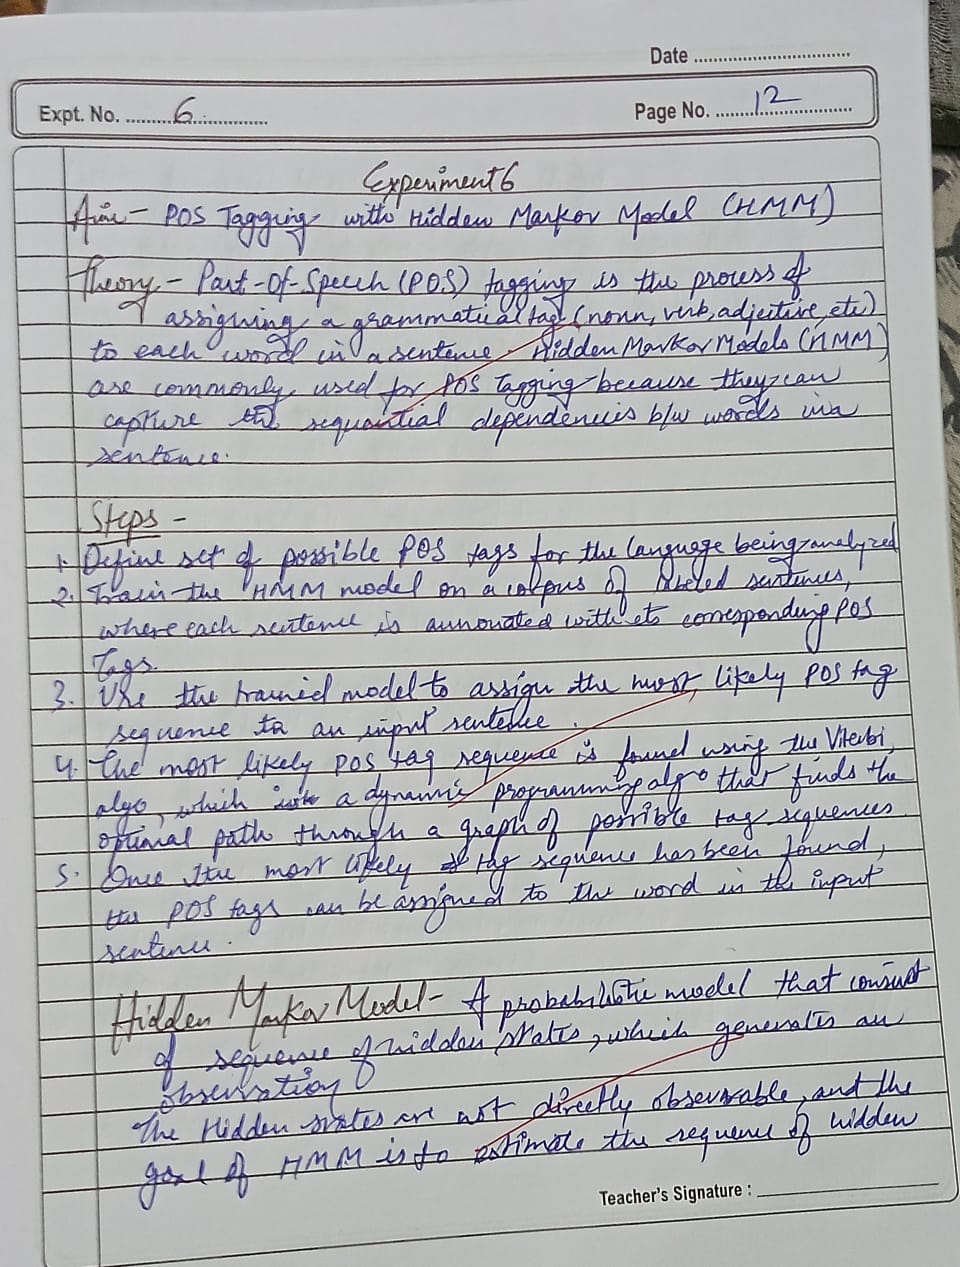 Date
Expt. No. 6
Page No. 12
Experiment 6
Aim - POS Tagging with Hidden Markov Model (HMM)
Theory - Part-Of-Speech (POS) tagging is the process of
assigning a grammatical tag (noun, verb, adjective, etc)
to each word in a sentence. Hidden Markov Models (HMM)
are commonly used for POS Tagging because they can
capture the sequential dependencies b/w words in a
sentence.
Steps -
1. Define set of possible POS tags for the language being analyzed
2. Train the HMM model on a corpus of labeled sentences,
where each sentence is annotated with its corresponding POS
Tags.
3. Use the trained model to assign the most likely POS tag
sequence to an input sentence.
4. The most likely POS tag sequence is found using the Viterbi
algo, which is a dynamic programming algo that finds the
optimal path through a graph of possible tag sequences.
5. Once the most likely tag sequence has been found,
the POS tags can be assigned to the word in the input
sentence.
Hidden Markov Model - A probabilistic model that consist
of sequence of hidden states, which generates an
observation
The Hidden states are not directly observable, and the
goal of HMM is to estimate the sequence of hidden
Teacher's Signature :